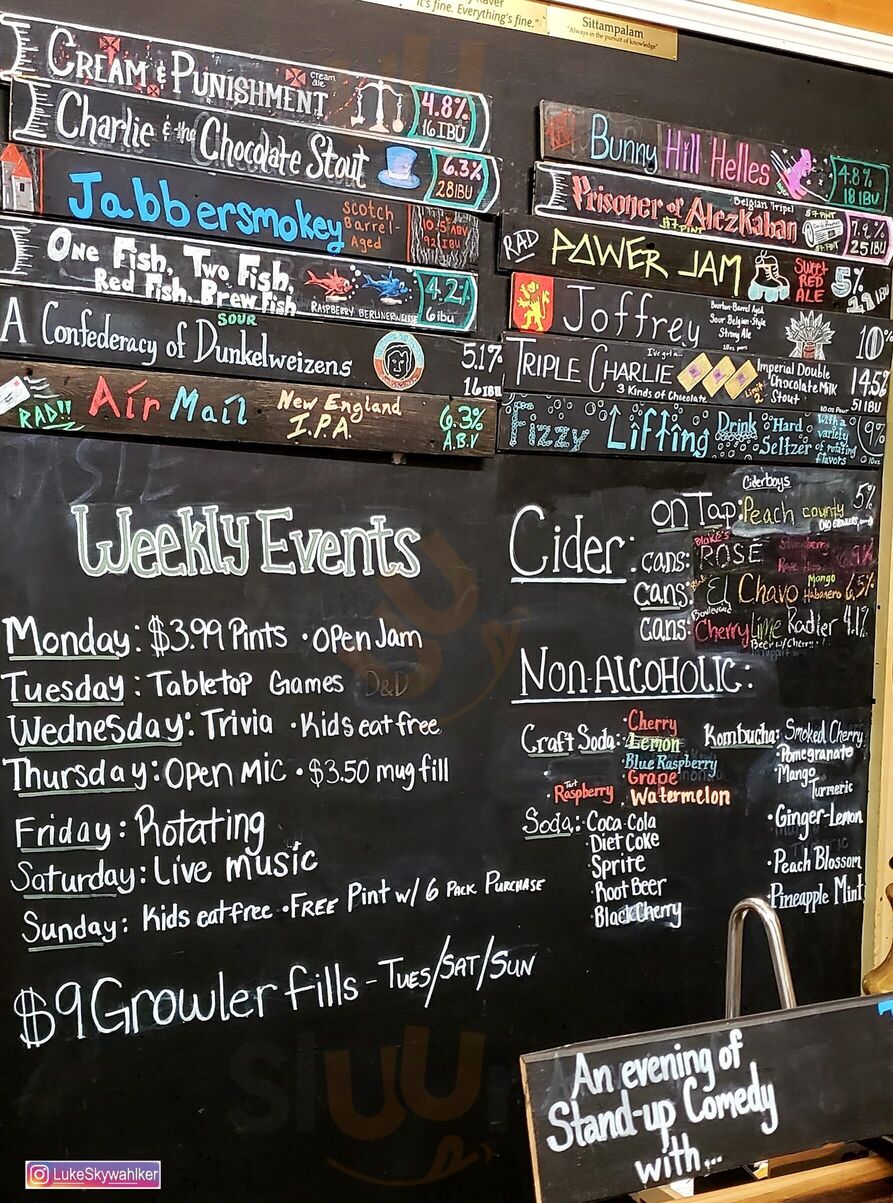 it's fine. Everything's fine."
Sittampalam
"Always in the pursuit of knowledge"
Cream & Punishment cream ale 4.8% 16 IBU
Charlie & the Chocolate Stout 6.3% 28 IBU
Jabbersmokey Scotch Barrel-Aged 10.5 ABV 92 IBU
One Fish, Two Fish,
Red Fish, Brew Fish Raspberry Berlinerweisse 4.2% 6 ibu
A Confederacy of Dunkelweizens 5.1% 16 IBU
SOUR
RAD!! Air Mail New England I.P.A. 6.3% A.B.V
Bunny Hill Helles 4.8% 18 IBU
Prisoner of Alezkaban Belgian Tripel $7 PINT 7.9% 25 IBU
RAD POWER JAM Sweet Red Ale 5%
Joffrey Bourbon-Barrel Aged Sour Belgian-Style Strong Ale 10%
Triple Charlie I've got a... 3 Kinds of Chocolate Limit 2 Imperial Double Chocolate Milk Stout 14.5% 51 IBU
Fizzy Lifting Drink Hard Seltzer with a variety of rotating flavors 9%
Weekly Events
Monday: $3.99 Pints • Open Jam
Tuesday: Tabletop Games D&D
Wednesday: Trivia • Kids eat free
Thursday: Open Mic • $3.50 mug fill
Friday: Rotating
Saturday: Live music
Sunday: Kids eat free • Free Pint w/ 6 Pack Purchase
$9 Growler fills - Tues/Sat/Sun
Cider:
Ciderboys
on Tap: Peach county 5%
cans: Blake's ROSÉ
cans: El Chavo Mango Habanero 6.5%
cans: Boulevard Cherry Lime Radler 4.1%
Beer w/ Cherry
Non-Alcoholic:
Craft Soda: • Cherry
• Lemon
• Blue Raspberry
• Grape
• Tart Raspberry Watermelon
Soda: • Coca-Cola
• Diet Coke
• Sprite
• Root Beer
• Black Cherry
Kombucha: Smoked Cherry
• Pomegranate
• Mango Turmeric
• Ginger-Lemon
• Peach Blossom
• Pineapple Mint
An evening of
Stand-up Comedy
with...
LukeSkywahlker